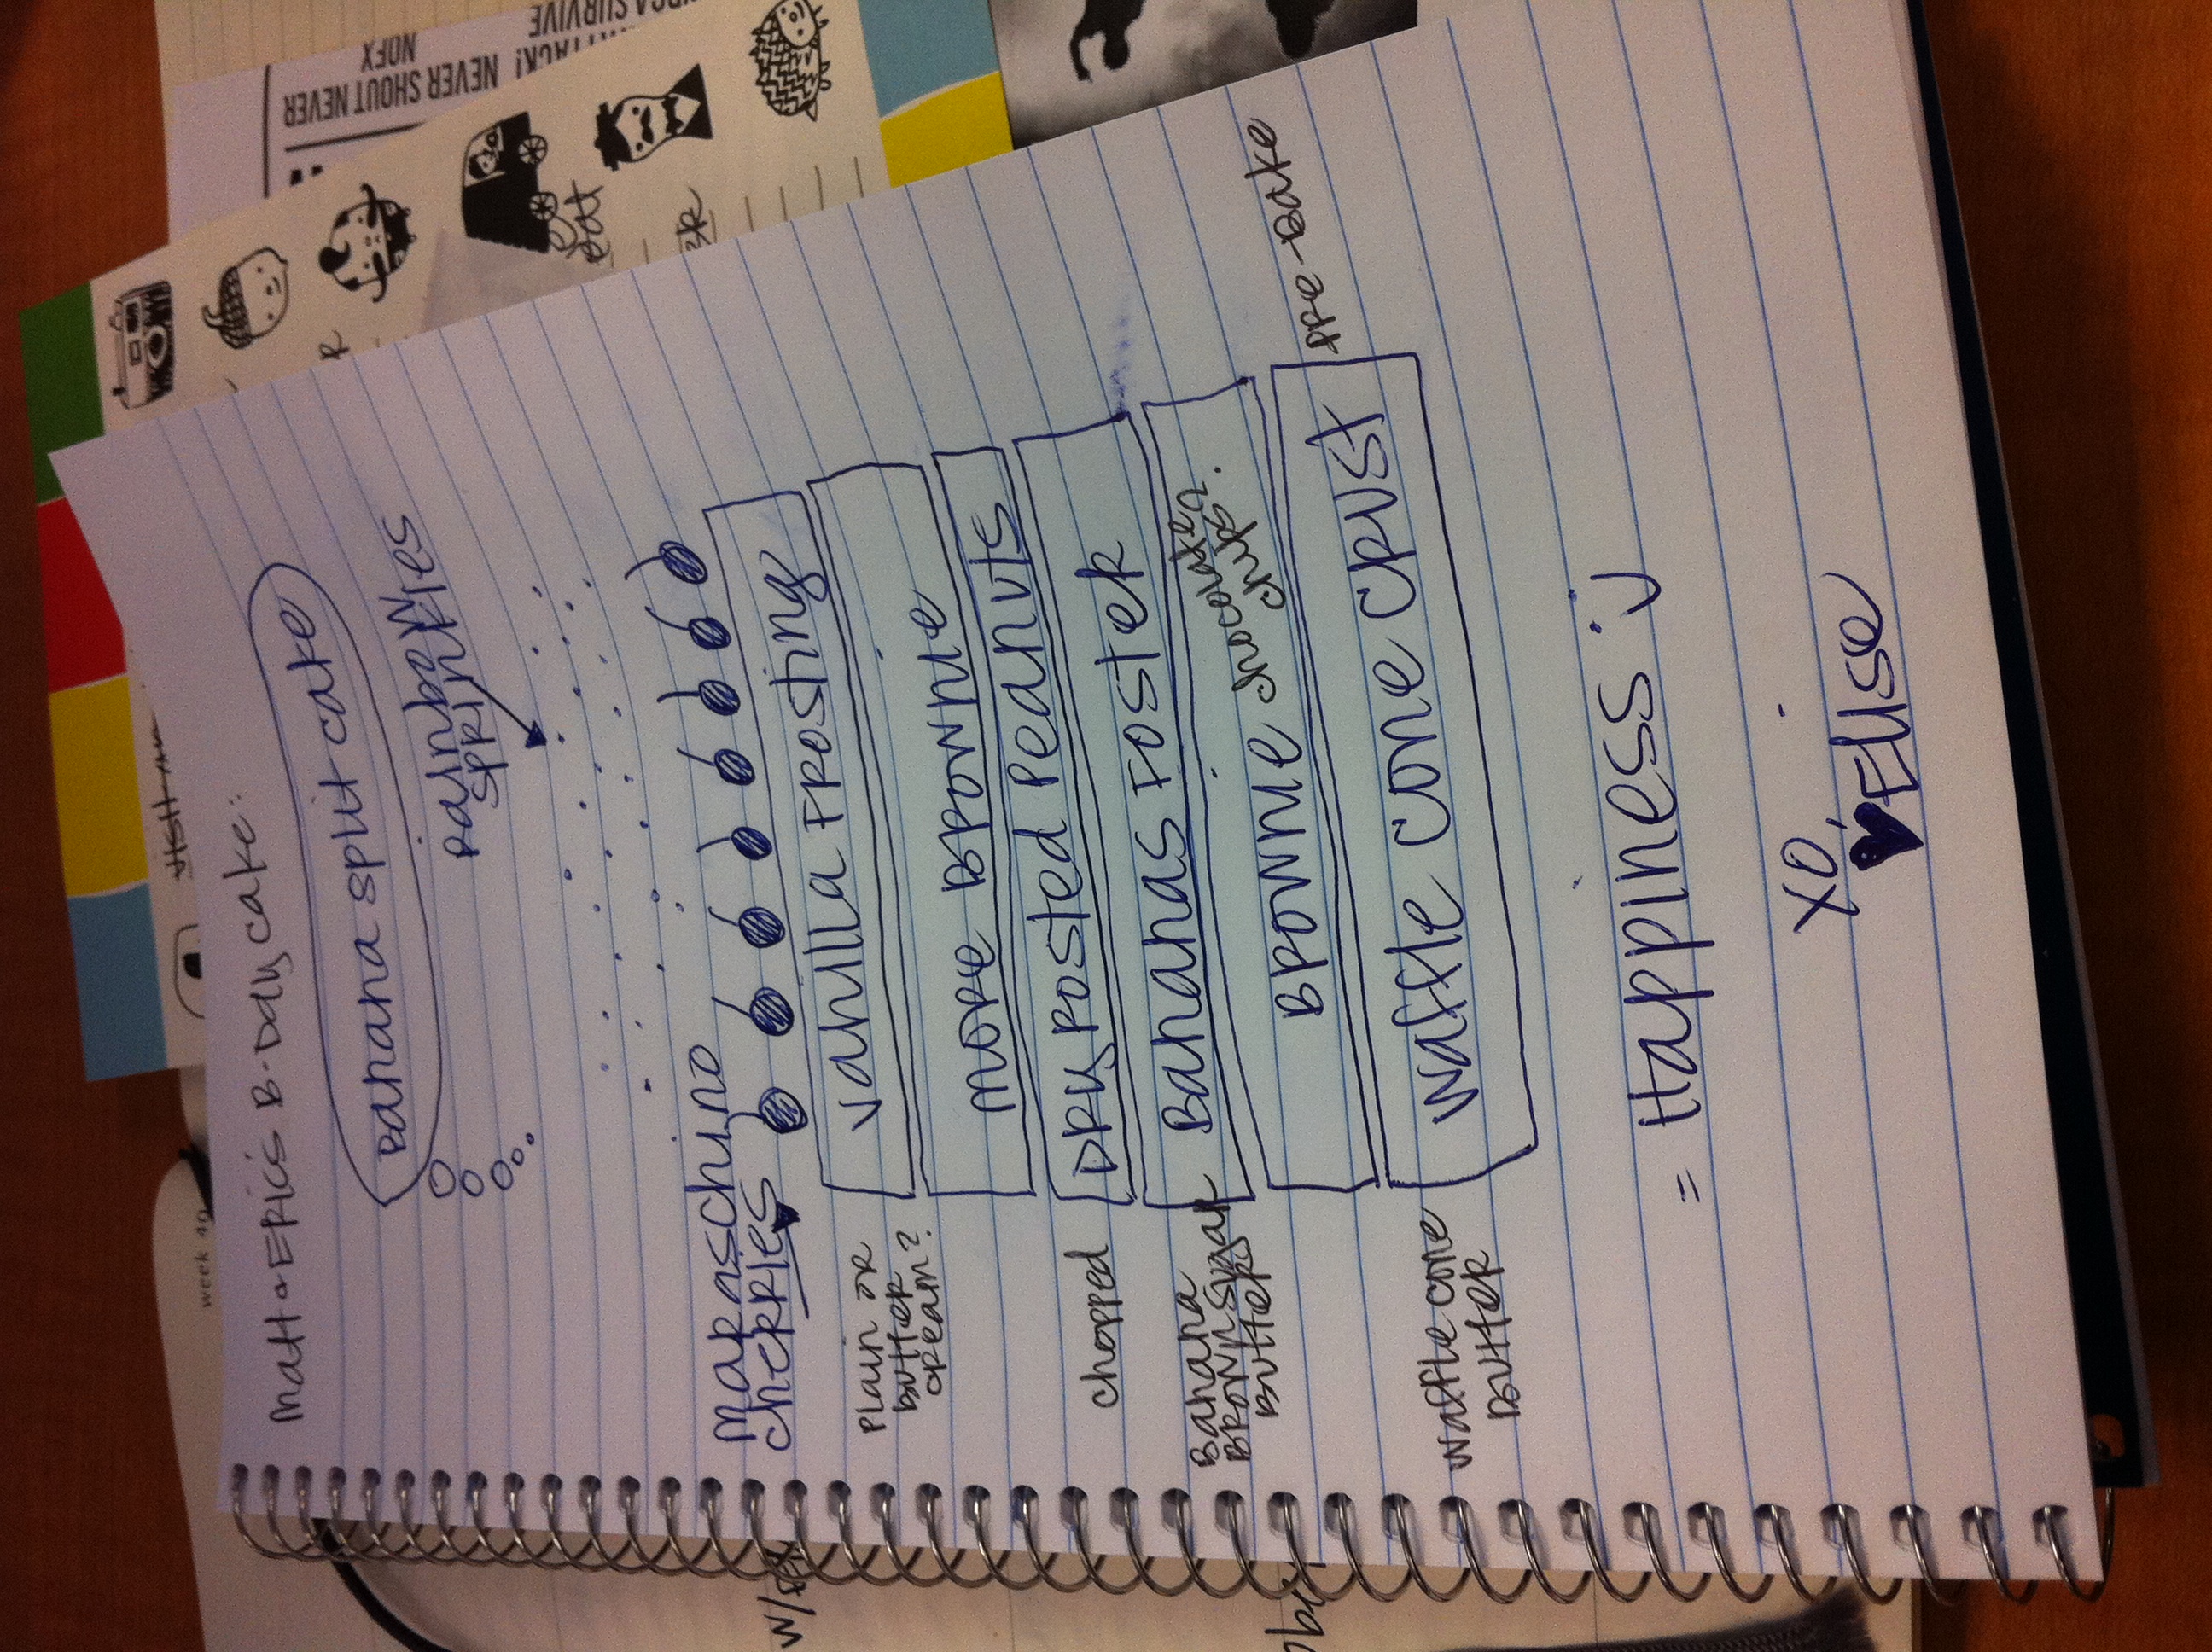 Matt & Eric's B-Day Cake:
Banana split cake
Rainbow
sprinkles
Maraschino
cherries
Vanilla Frosting
Plain or
butter
cream?
More Brownie
Dry Rosted Peanuts
chopped
Bananas Foster
Banana
Brown Sugar
Butter
Brownie chocolatey?
chips?
Waffle Cone Crust
pre-bake
waffle cone
butter
= Happiness :)
XO,
♥Elise
week 40
NEVER SHOUT NEVER
NOFX
eat
w/